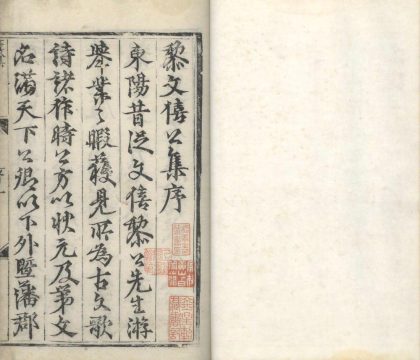 黎文僖公集序
東陽昔從文僖黎公先生游
舉業之暇獲見所為古文歌
詩諸作時公方以狀元及第文
名滿天下公退以下外暨藩郡